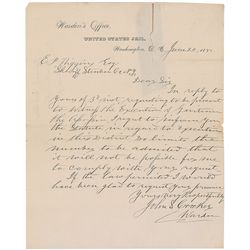 Warden's Office,
UNITED STATES JAIL,
Washington, D. C. June 20, 188
E. F. Higgins Esq
Dear Sir
In reply to
yours of regarding to be present
to witness the Execution of
I to inform you
the in regard to execution
in this District so limits the
number to be admitted that
it will not be possible for me
to comply with your request
If the Law permitted I would
have been glad to your
Yours very Respectfully
John S. Crocker
Warden